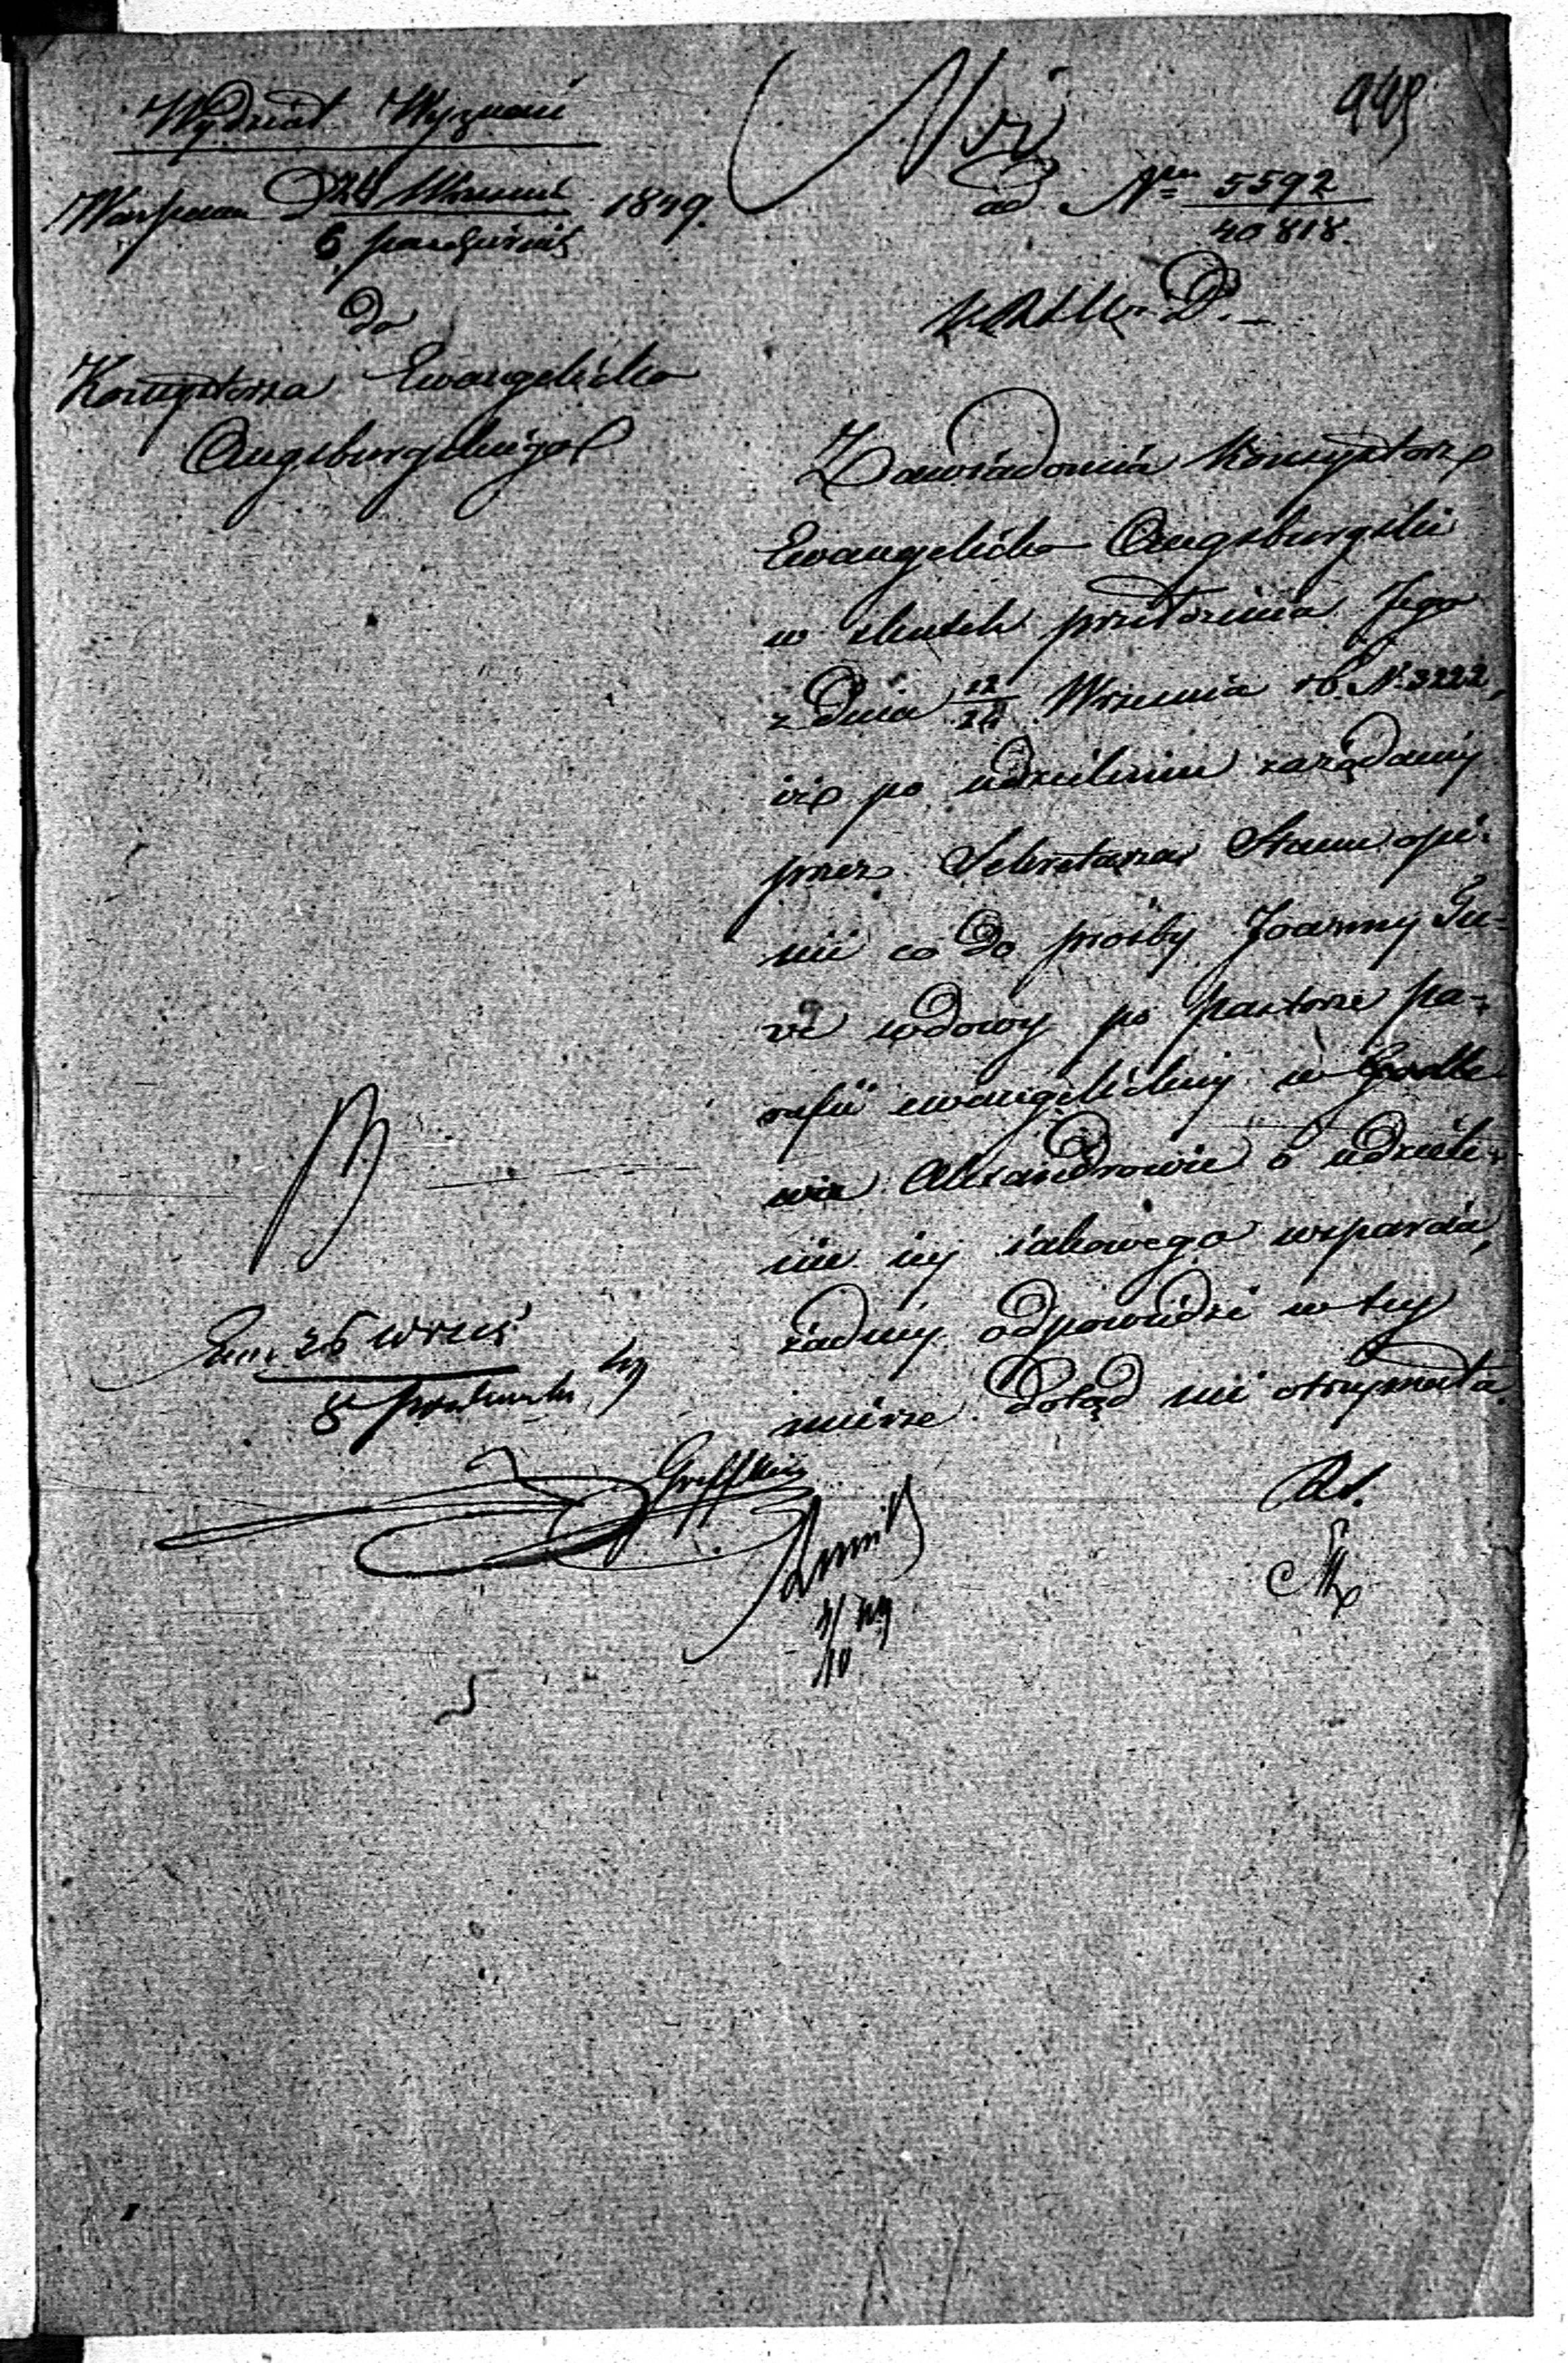 449
Wydział Wyznań
Warszawa D 24 Wrześni 1849.
6 październik
do
Konsystorza Ewangelicko
Augsburgskiego
ad N 5592
40818
Zawiadomia Konsystorz
Ewangelicko Augsburgski
w skutek przełożenia Jego
z Dnia 12/24 Września rb. N. 3222,
iż po udzieleniu zażądanéj
przez Sekretarza Stanu opi-
nii co do prośby Joanny Gu-
ve wdowy po pastorze pa-
rafii ewangelickiéj w
Alexandrowie o udziele-
nie jéj jakowego wsparcia,
żadnéj odpowiedzi w téj
mierze dotąd nie otrzymała.
26 wrześ
8 październ 49